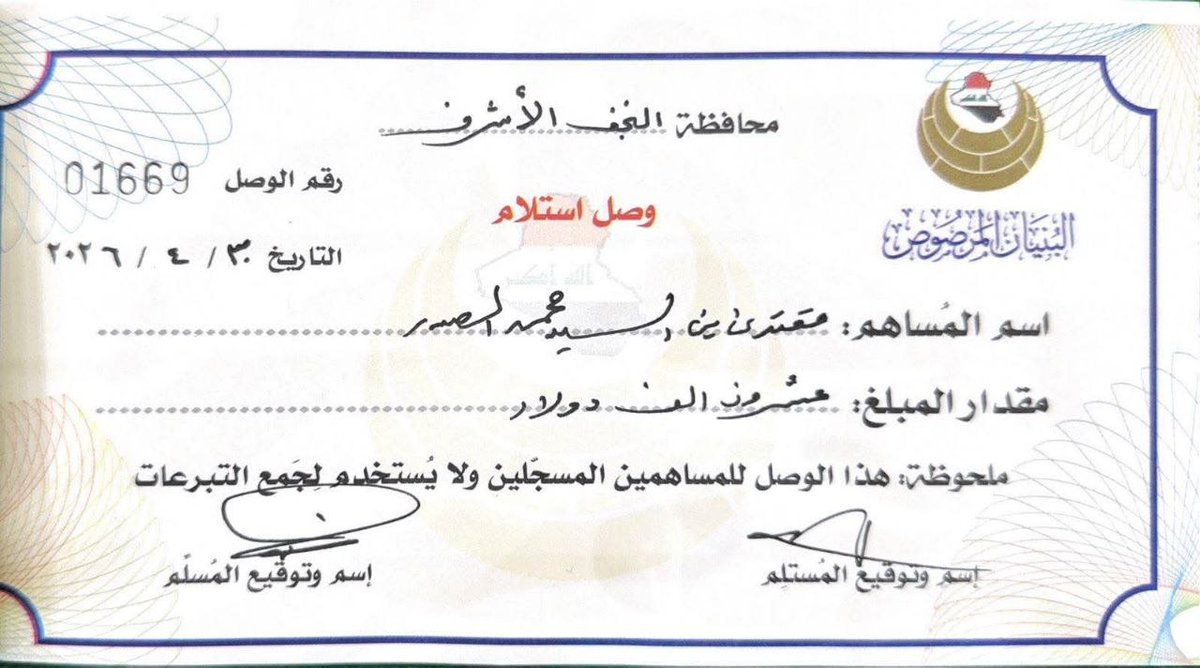 محافظة النجف الأشرف
البُنيان المَرصُوص
رقم الوصل 01669
وصل استلام
التاريخ ٣٠ / ٤ / ٢٠٢٦
اسم المُساهم: مقتدى بن السيد محمد الصدر
مقدار المبلغ: عشرون الف دولار
ملحوظة: هذا الوصل للمساهمين المسجّلين ولا يُستخدم لِجَمع التبرعات
إسم وتوقيع المُستلِم
إسم وتوقيع المُسلّم